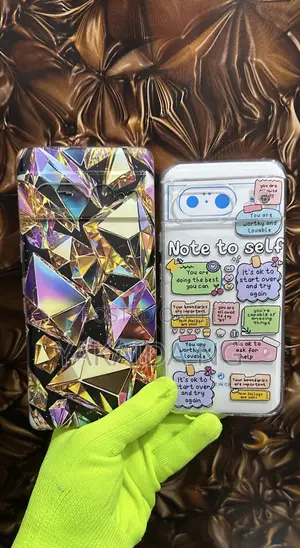 you are
You are
worthy and
lovable
Note to self
You are
doing the best
you can
It's ok to
start over
and try
again
Your boundaries
are important.
you are
allowed
to say
"no"
you're
capable of
amazing
things
Your feelings
are valid
You are
worthy and
lovable
It's ok to
ask for
help
It's ok to
start over
and try
again
Your boundaries
are important.
Your feelings
are valid